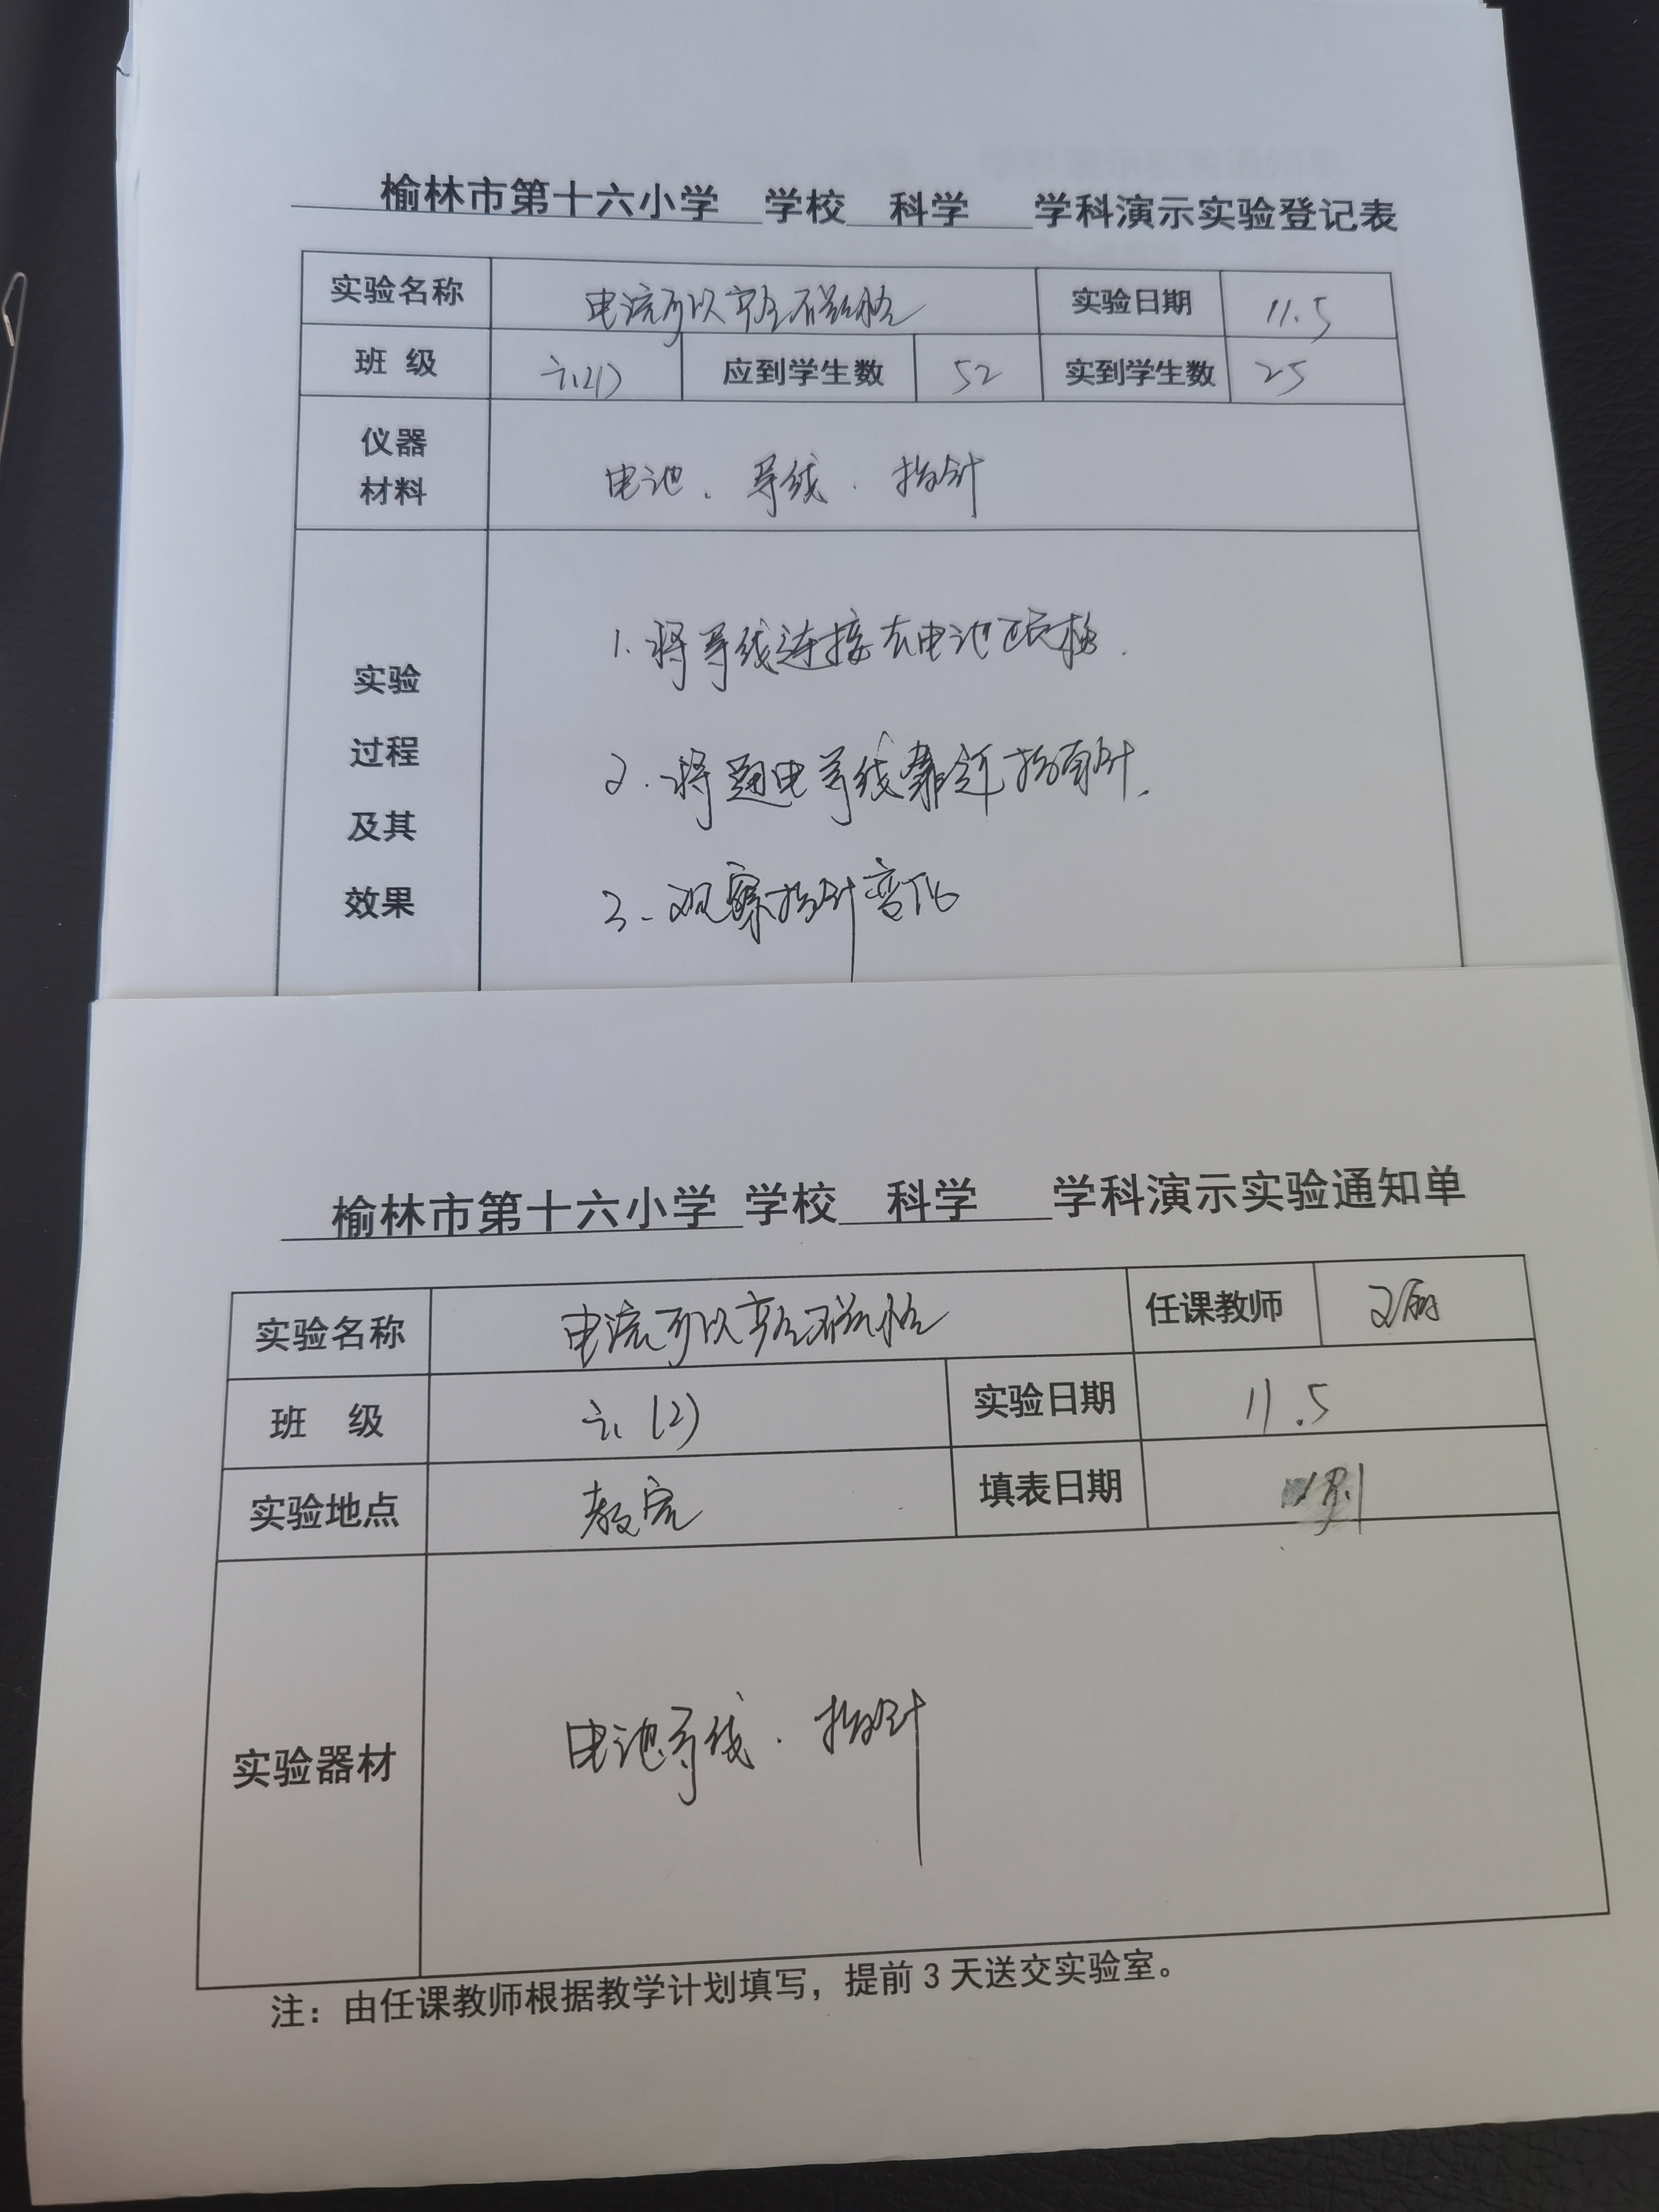 榆林市第十六小学 学校 科学 学科演示实验登记表
实验名称 电流可以产生磁性 实验日期 11.5
班 级 六(2) 应到学生数 52 实到学生数 25
仪器
材料
电池、导线、指针
1.将导线连接在电池正负极.
实验
过程
2.将通电导线靠近指南针.
及其
效果
3.观察指针变化
榆林市第十六小学 学校 科学 学科演示实验通知单
实验名称 电流可以产生磁性 任课教师
班 级 六(2) 实验日期 11.5
实验地点 教室 填表日期
实验器材 电池导线、指针
注：由任课教师根据教学计划填写，提前3天送交实验室。